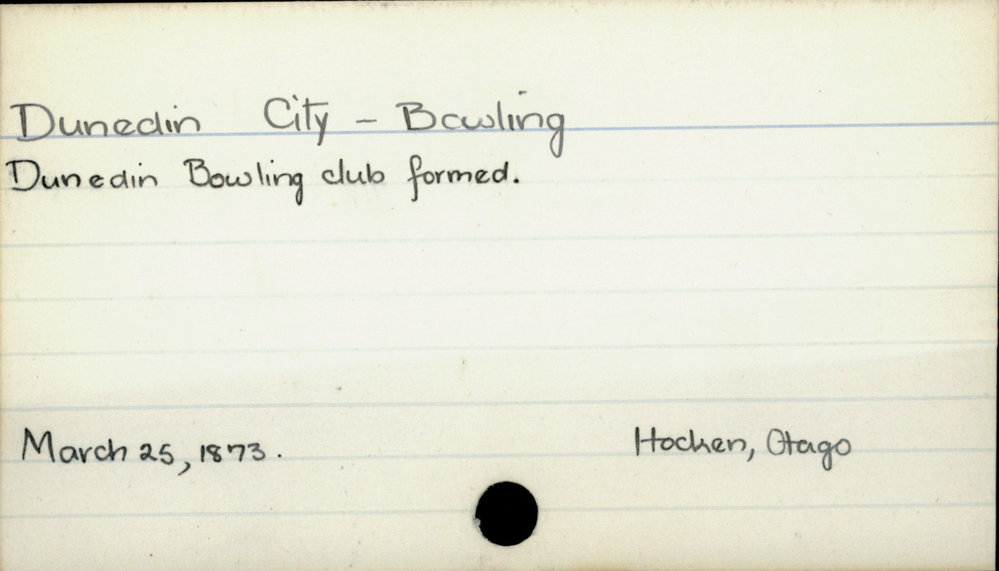 Dunedin City - Bowling
Dunedin Bowling club formed.
March 25, 1873.
Hocken, Otago